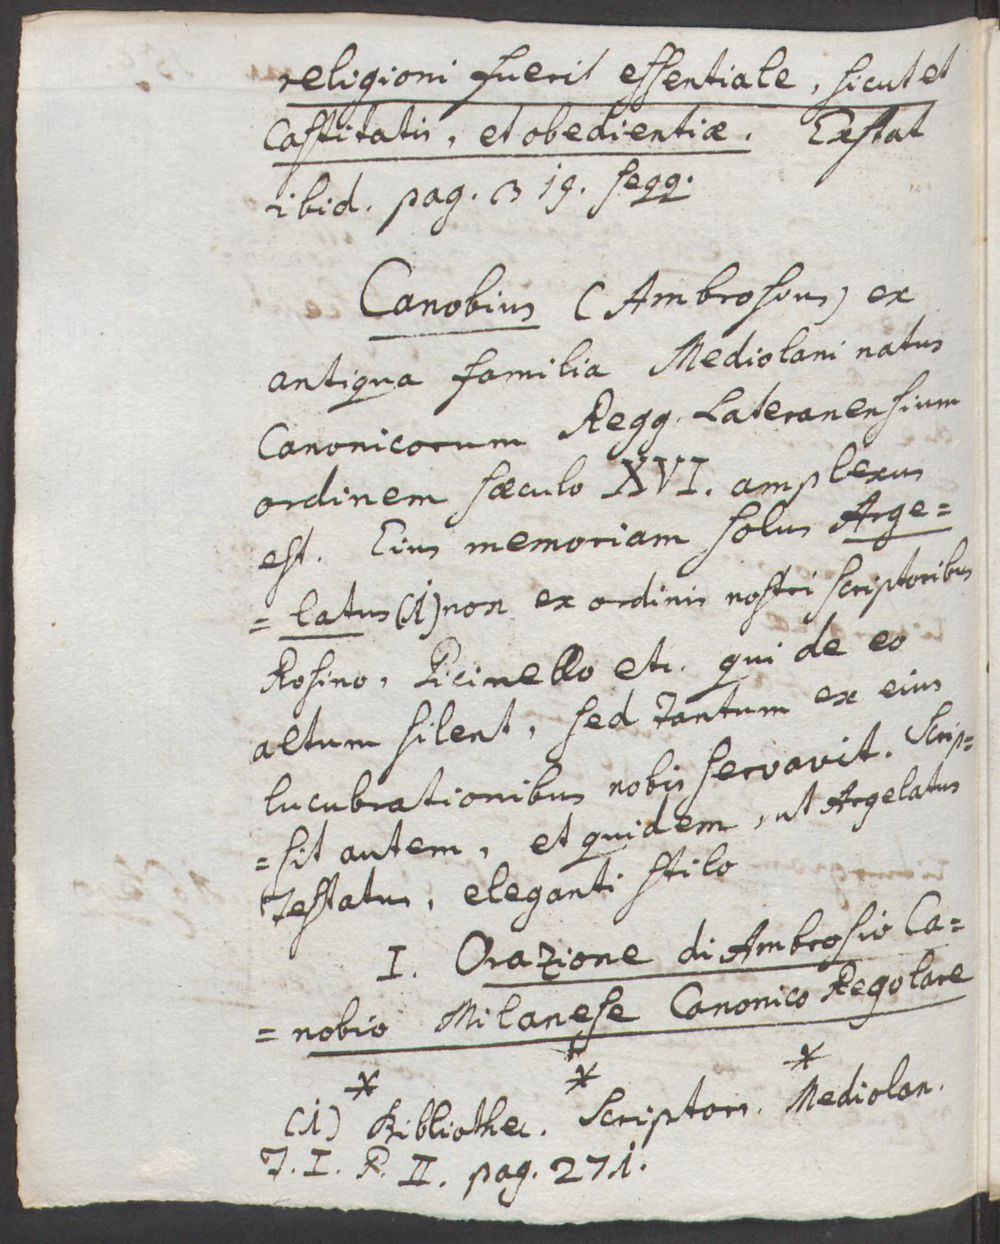 religioni fuerit essentiale, sicut et
Castitatis, et obedientiæ. Exstat
ibid. pag. 319. seqq.
Canobius (Ambrosius) ex
antiqua familia Mediolani natus
Canonicorum Regg. Lateranensium
ordinem sæculo XVI. amplexus
est. Eius memoriam solus Arge=
=latus (1) non ex ordinis nostri scriptoribus
Rosino, Picinello etc. qui de eo
altum silent, sed tantum ex eius
lucubrationibus nobis servavit. Scrip=
=sit autem, et quidem, ut Argelatus
testatus, eleganti stilo
I. Orazione di Ambrosio Ca=
=nobio Milanese Canonico Regolare
* * *
(1) Bibliothec. Scriptor. Mediolan.
T. I. P. II. pag. 271.